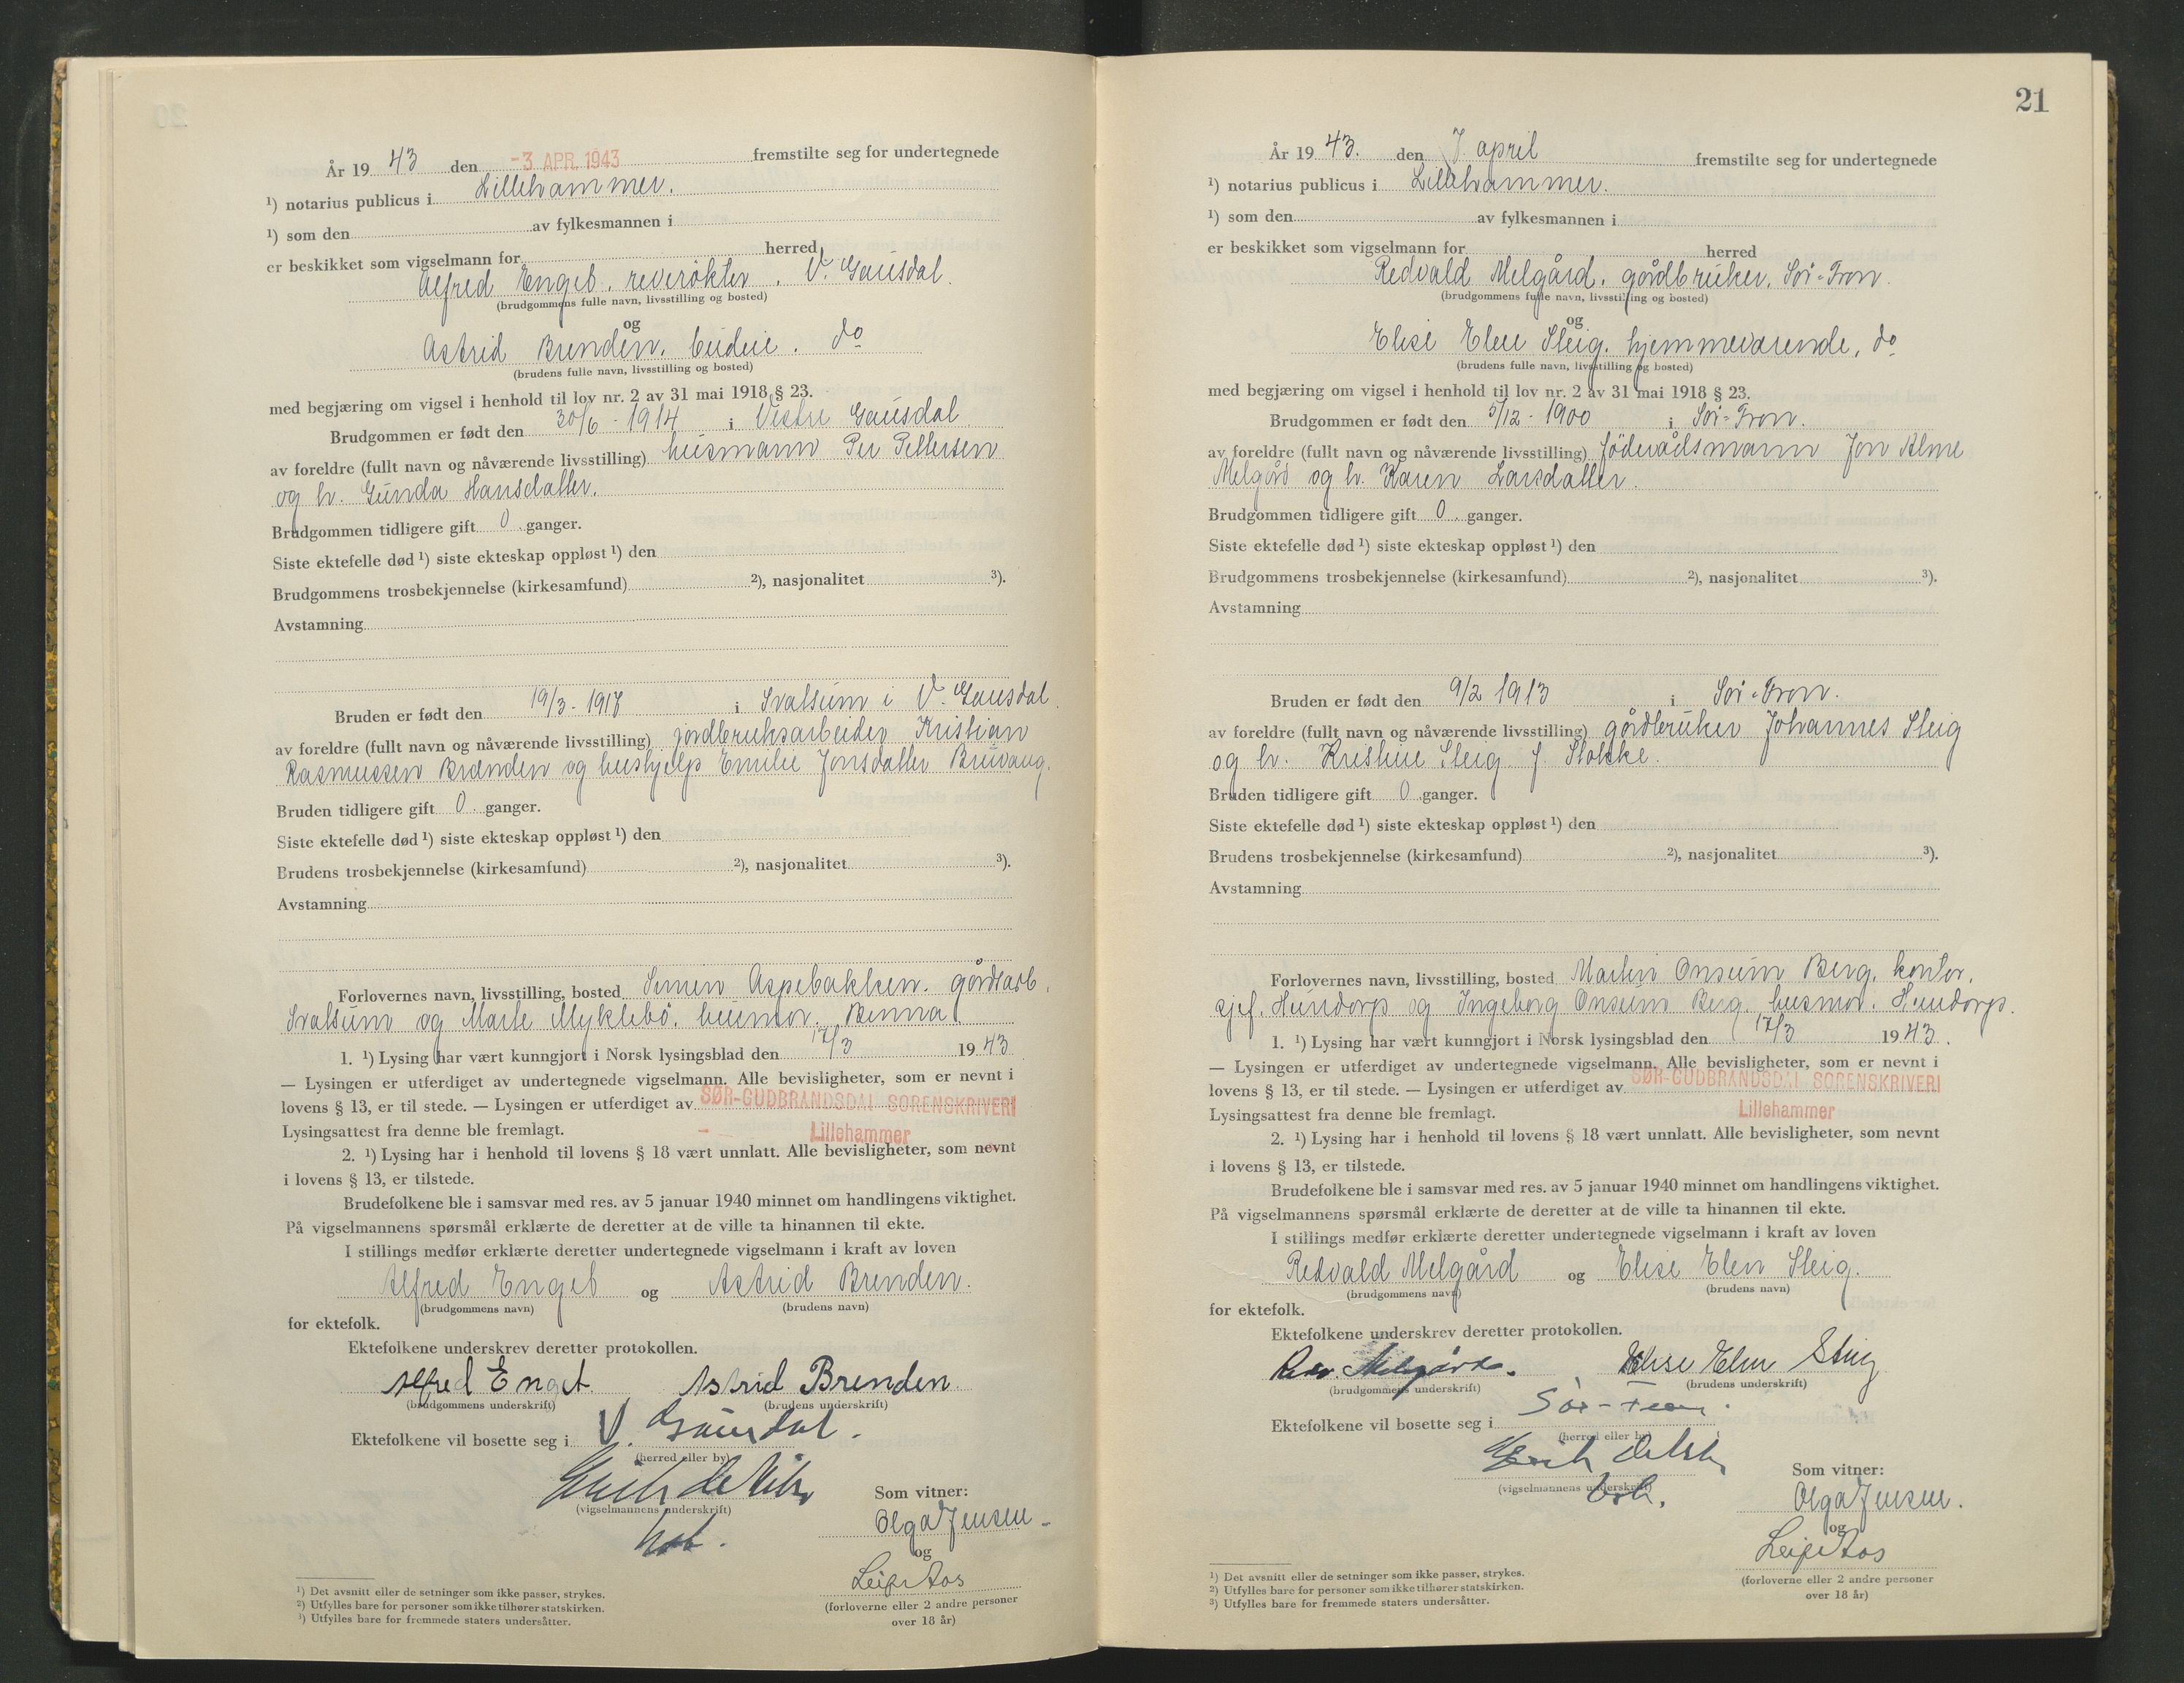 År 19 43 den -3 APR. 1943 fremstilte seg for undertegnede
¹) notarius publicus i Lillehammer.
¹) som den av fylkesmannen i
er beskikket som vigselmann for herred
Alfred Engeb, reverøkter, V. Gausdal.
(brudgommens fulle navn, livsstilling og bosted)
og
Astrid Brenden, budeie. do
(brudens fulle navn, livsstilling og bosted)
med begjæring om vigsel i henhold til lov nr. 2 av 31 mai 1918 § 23.
Brudgommen er født den 30/6 - 1914 i Vestre Gausdal
av foreldre (fullt navn og nåværende livsstilling) husmann Per Pettersen
og h. Gunda Hansdatter.
Brudgommen tidligere gift 0. ganger.
Siste ektefelle død ¹) siste ekteskap oppløst ¹) den
Brudgommens trosbekjennelse (kirkesamfund) ²), nasjonalitet ³).
Avstamning
Bruden er født den 19/3 - 1917 i Svatsum i V. Gausdal.
av foreldre (fullt navn og nåværende livsstilling) jordbruksarbeider Kristian
Rasmussen Brænden og hushjelp Emilie Jonsdatter Bruvang.
Bruden tidligere gift 0. ganger.
Siste ektefelle død ¹) siste ekteskap oppløst ¹) den
Brudens trosbekjennelse (kirkesamfund) ²), nasjonalitet ³).
Avstamning
Forlovernes navn, livsstilling, bosted Simen Aspebakken. gårdsarb.
Svatsum og Marte Myklebö. husmor.
1. ¹) Lysing har vært kunngjort i Norsk lysingsblad den 17/3 19 43
— Lysingen er utferdiget av undertegnede vigselmann. Alle bevisligheter, som er nevnt i
lovens § 13, er til stede. — Lysingen er utferdiget av SØR-GUDBRANDSDAL SORENSKRIVERI
Lysingsattest fra denne ble fremlagt. Lillehammer
2. ¹) Lysing har i henhold til lovens § 18 vært unnlatt. Alle bevisligheter, som nevnt
i lovens § 13, er tilstede.
Brudefolkene ble i samsvar med res. av 5 januar 1940 minnet om handlingens viktighet.
På vigselmannens spørsmål erklærte de deretter at de ville ta hinannen til ekte.
I stillings medfør erklærte deretter undertegnede vigselmann i kraft av loven
Alfred Engeb og Astrid Brenden.
(brudgommens navn) (brudens navn)
for ektefolk.
Ektefolkene underskrev deretter protokollen.
Alfred Enget. Astrid Brenden.
(brudgommens underskrift) (brudens underskrift)
Ektefolkene vil bosette seg i V. Gausdal.
(herred eller by)
(vigselmannens underskrift) Som vitner:
Olga Jensen
og
Leif Aos
(forloverne eller 2 andre personer
over 18 år)
¹) Det avsnitt eller de setninger som ikke passer, strykes.
²) Utfylles bare for personer som ikke tilhører statskirken.
³) Utfylles bare for fremmede staters undersåtter.
21
År 19 43. den 7. april fremstilte seg for undertegnede
¹) notarius publicus i Lillehammer.
¹) som den av fylkesmannen i
er beskikket som vigselmann for herred
Redvald Melgård, gårdbruker, Sör-Fron.
(brudgommens fulle navn, livsstilling og bosted)
og
Elise Elen Steig, hjemmeværende, do
(brudens fulle navn, livsstilling og bosted)
med begjæring om vigsel i henhold til lov nr. 2 av 31 mai 1918 § 23.
Brudgommen er født den 5/12 - 1900 i Sör-Fron.
av foreldre (fullt navn og nåværende livsstilling) föderådsmann Jon Alme
Melgård og h. Karen Larsdatter.
Brudgommen tidligere gift 0. ganger.
Siste ektefelle død ¹) siste ekteskap oppløst ¹) den
Brudgommens trosbekjennelse (kirkesamfund) ²), nasjonalitet ³).
Avstamning
Bruden er født den 9/2 1913 i Sör-Fron.
av foreldre (fullt navn og nåværende livsstilling) gårdbruker Johannes Steig
og h. Kristine Steig f. Stokke.
Bruden tidligere gift 0 ganger.
Siste ektefelle død ¹) siste ekteskap oppløst ¹) den
Brudens trosbekjennelse (kirkesamfund) ²), nasjonalitet ³).
Avstamning
Forlovernes navn, livsstilling, bosted Martin Onsum Berg, kontor.
sjef, Hundorp og Ingeborg Onsum Berg, husmor, Hundorp.
1. ¹) Lysing har vært kunngjort i Norsk lysingsblad den 17/3 19 43.
— Lysingen er utferdiget av undertegnede vigselmann. Alle bevisligheter, som er nevnt i
lovens § 13, er til stede. — Lysingen er utferdiget av SØR-GUDBRANDSDAL SORENSKRIVERI
Lysingsattest fra denne ble fremlagt. Lillehammer
2. ¹) Lysing har i henhold til lovens § 18 vært unnlatt. Alle bevisligheter, som nevnt
i lovens § 13, er tilstede.
Brudefolkene ble i samsvar med res. av 5 januar 1940 minnet om handlingens viktighet.
På vigselmannens spørsmål erklærte de deretter at de ville ta hinannen til ekte.
I stillings medfør erklærte deretter undertegnede vigselmann i kraft av loven
Redvald Melgård og Elise Elen Steig.
(brudgommens navn) (brudens navn)
for ektefolk.
Ektefolkene underskrev deretter protokollen.
Redv. Melgård. Elise Elen Steig
(brudgommens underskrift) (brudens underskrift)
Ektefolkene vil bosette seg i Sör-Fron.
(herred eller by)
(vigselmannens underskrift) Som vitner:
Olga Jensen.
og
Leif Aos
(forloverne eller 2 andre personer
over 18 år)
¹) Det avsnitt eller de setninger som ikke passer, strykes.
²) Utfylles bare for personer som ikke tilhører statskirken.
³) Utfylles bare for fremmede staters undersåtter.